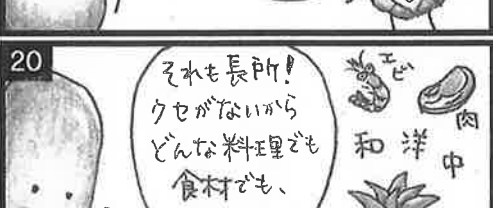 20
それも長所!
クセがないから
どんな料理でも
食材でも、
エビ
肉
和 洋 中